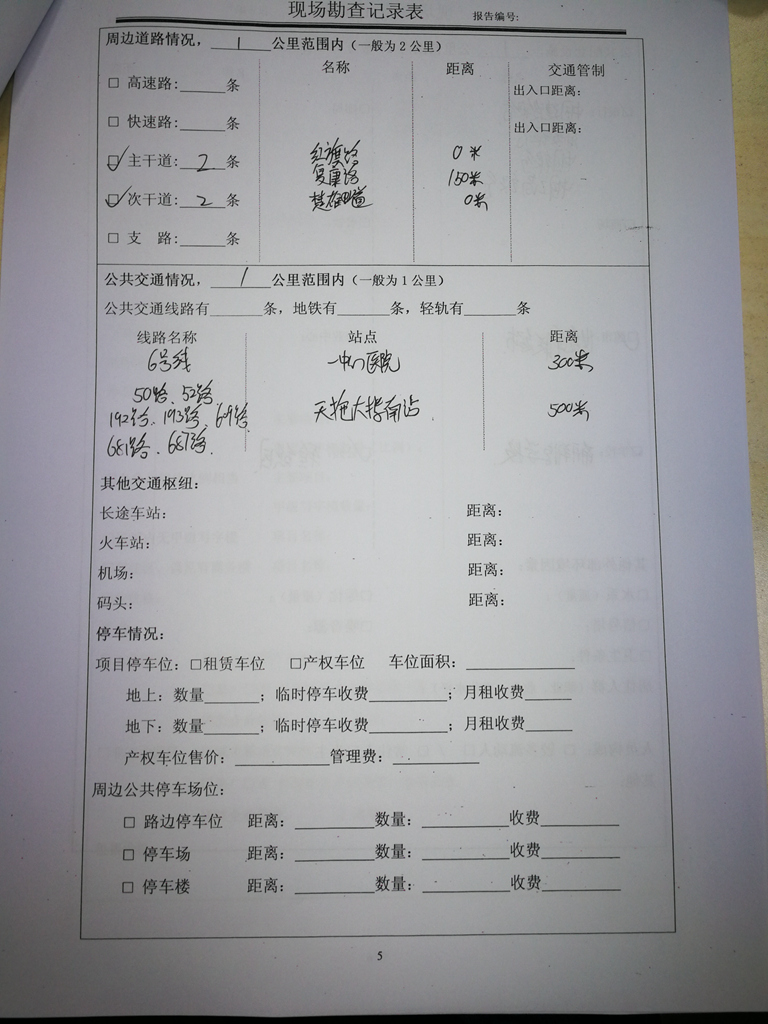 现场勘查记录表 报告编号:
周边道路情况，1公里范围内（一般为2公里）
名称 距离 交通管制
□ 高速路:______条 出入口距离:
□ 快速路:______条 出入口距离:
☑ 主干道: 2 条 红旗路 0米
复康路 150米
☑ 次干道: 2 条 楚雄道 0米
□ 支 路:______条
公共交通情况，1公里范围内（一般为1公里）
公共交通线路有______条，地铁有______条，轻轨有______条
线路名称 站点 距离
6号线 一中心医院 300米
50路、52路、
192路、193路、619路 天拖大楼南站 500米
681路、687路
其他交通枢纽:
长途车站: 距离:
火车站: 距离:
机场: 距离:
码头: 距离:
停车情况:
项目停车位: □租赁车位 □产权车位 车位面积: ____________
地上: 数量______; 临时停车收费________; 月租收费_____
地下: 数量______; 临时停车收费________; 月租收费_____
产权车位售价: __________管理费: _________
周边公共停车场位:
□ 路边停车位 距离: ________数量: _________收费________
□ 停车场 距离: ________数量: _________收费________
□ 停车楼 距离: ________数量: _________收费________
5